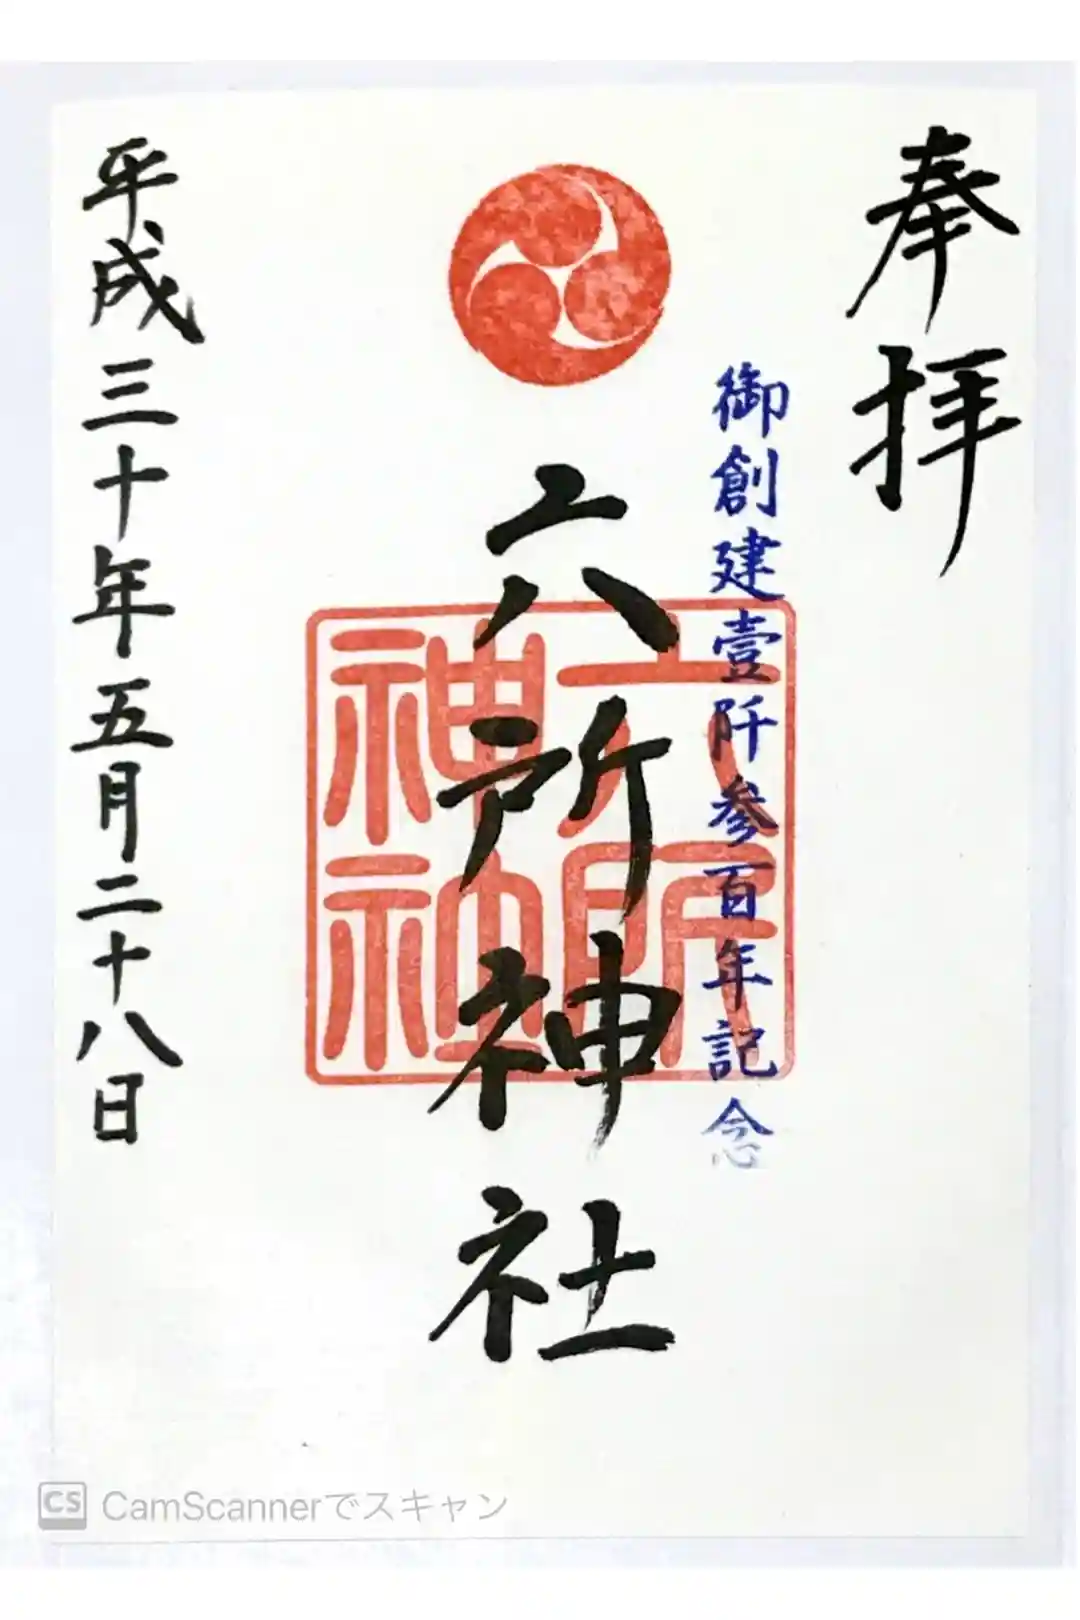 奉拝
御創建壹阡参百年記念
六所神社
六所神社
平成三十年五月二十八日
CS CamScannerでスキャン